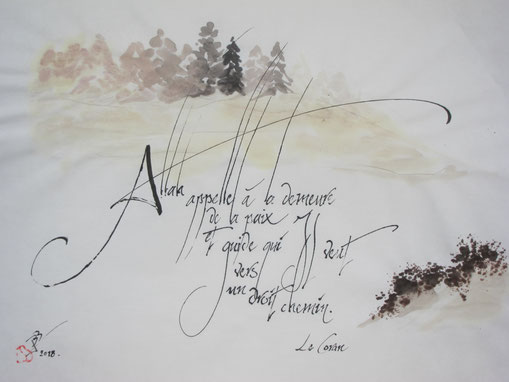 Allah appelle à la demeure
de la paix
Et guide qui Il veut
vers
un droit chemin.
Le Coran
2018.